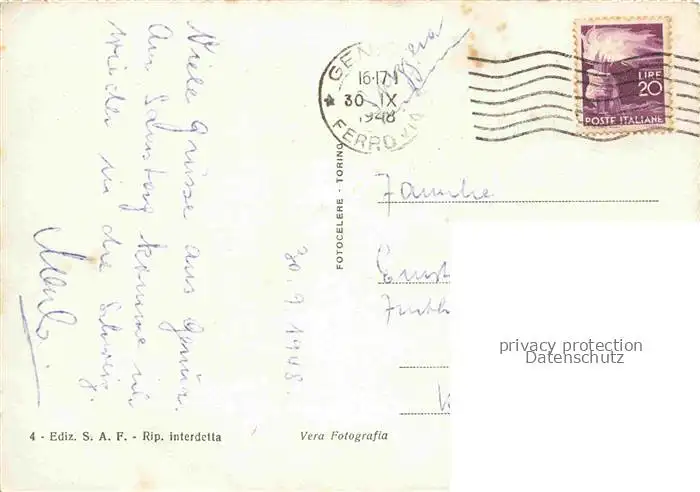 Viele Grüsse aus Genua.
Am Samstag komme ich
wieder in die Schweiz.
30. 9. 1948.
FOTOCELERE - TORINO
GEN
16-17
30 IX
1948
FERROVIA
LIRE
20
POSTE ITALIANE
Familie
privacy protection
Datenschutz
4 - Ediz. S. A. F. - Rip. interdetta
Vera Fotografia